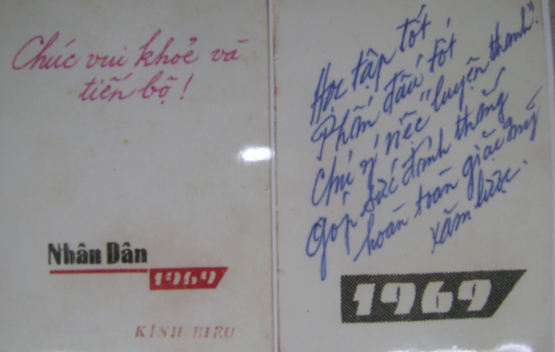 Chúc vui khoẻ và
tiến bộ!
Nhân Dân
1969
KÍNH BIẾU
Học tập tốt
Phấn đấu tốt
Chú ý việc "luyện thanh"!
Góp sức đánh thắng
hoàn toàn giặc Mỹ
xâm lược.
1969